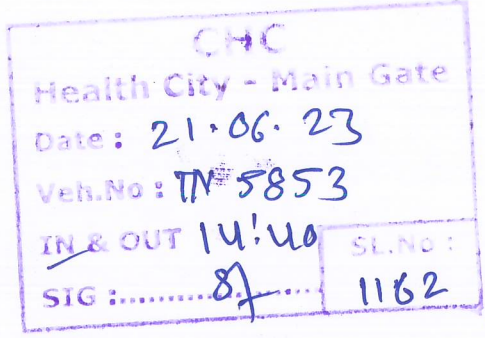 CHC
Health City - Main Gate
Date : 21.06.23
Veh.No : TN 5853
IN & OUT 14:40
SL.No :
1162
SIG :